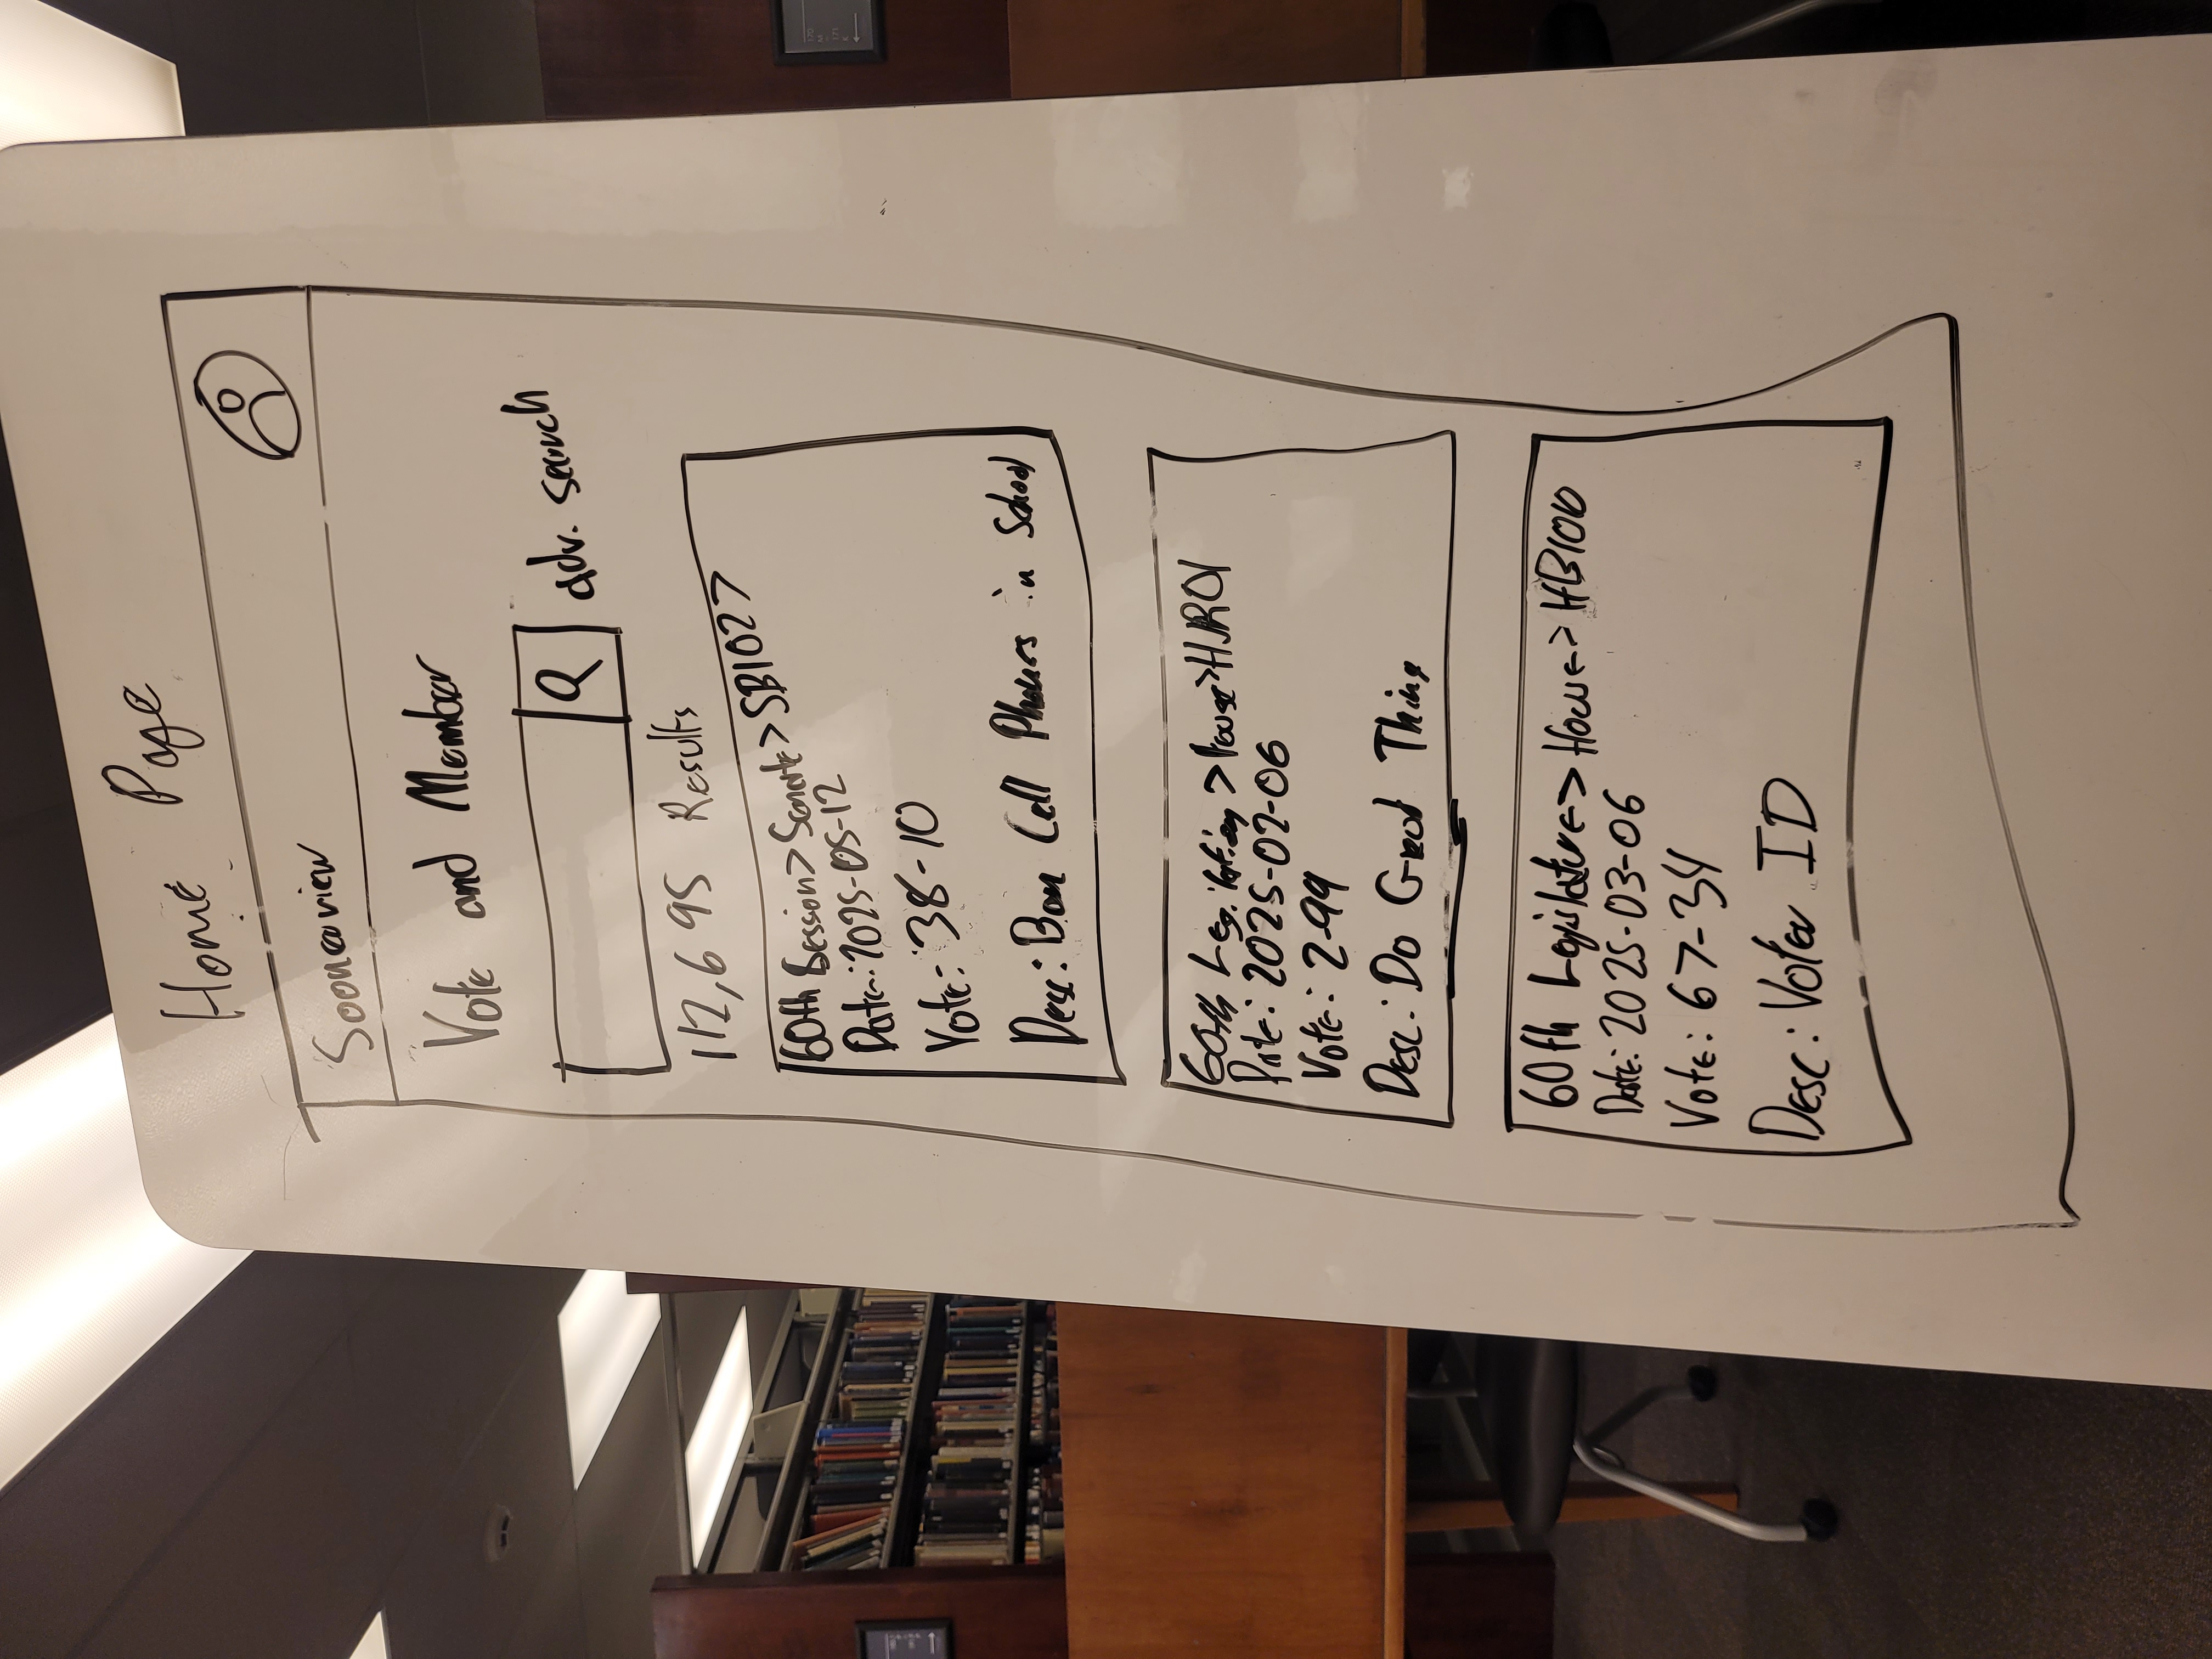 Home Page
Soonerview
Vote and Member
adv. search
112,695 Results
60th Session > Senate > SB1027
Date: 2025-05-12
Vote: 38-10
Desc: Ban Cell Phones in School
60th > House > HJR01
Date: 2025-02-06
Vote: 2-99
Desc: Do Good Thing
60th Legislature > House > HB1010
Date: 2025-03-06
Vote: 67-34
Desc: Voter ID